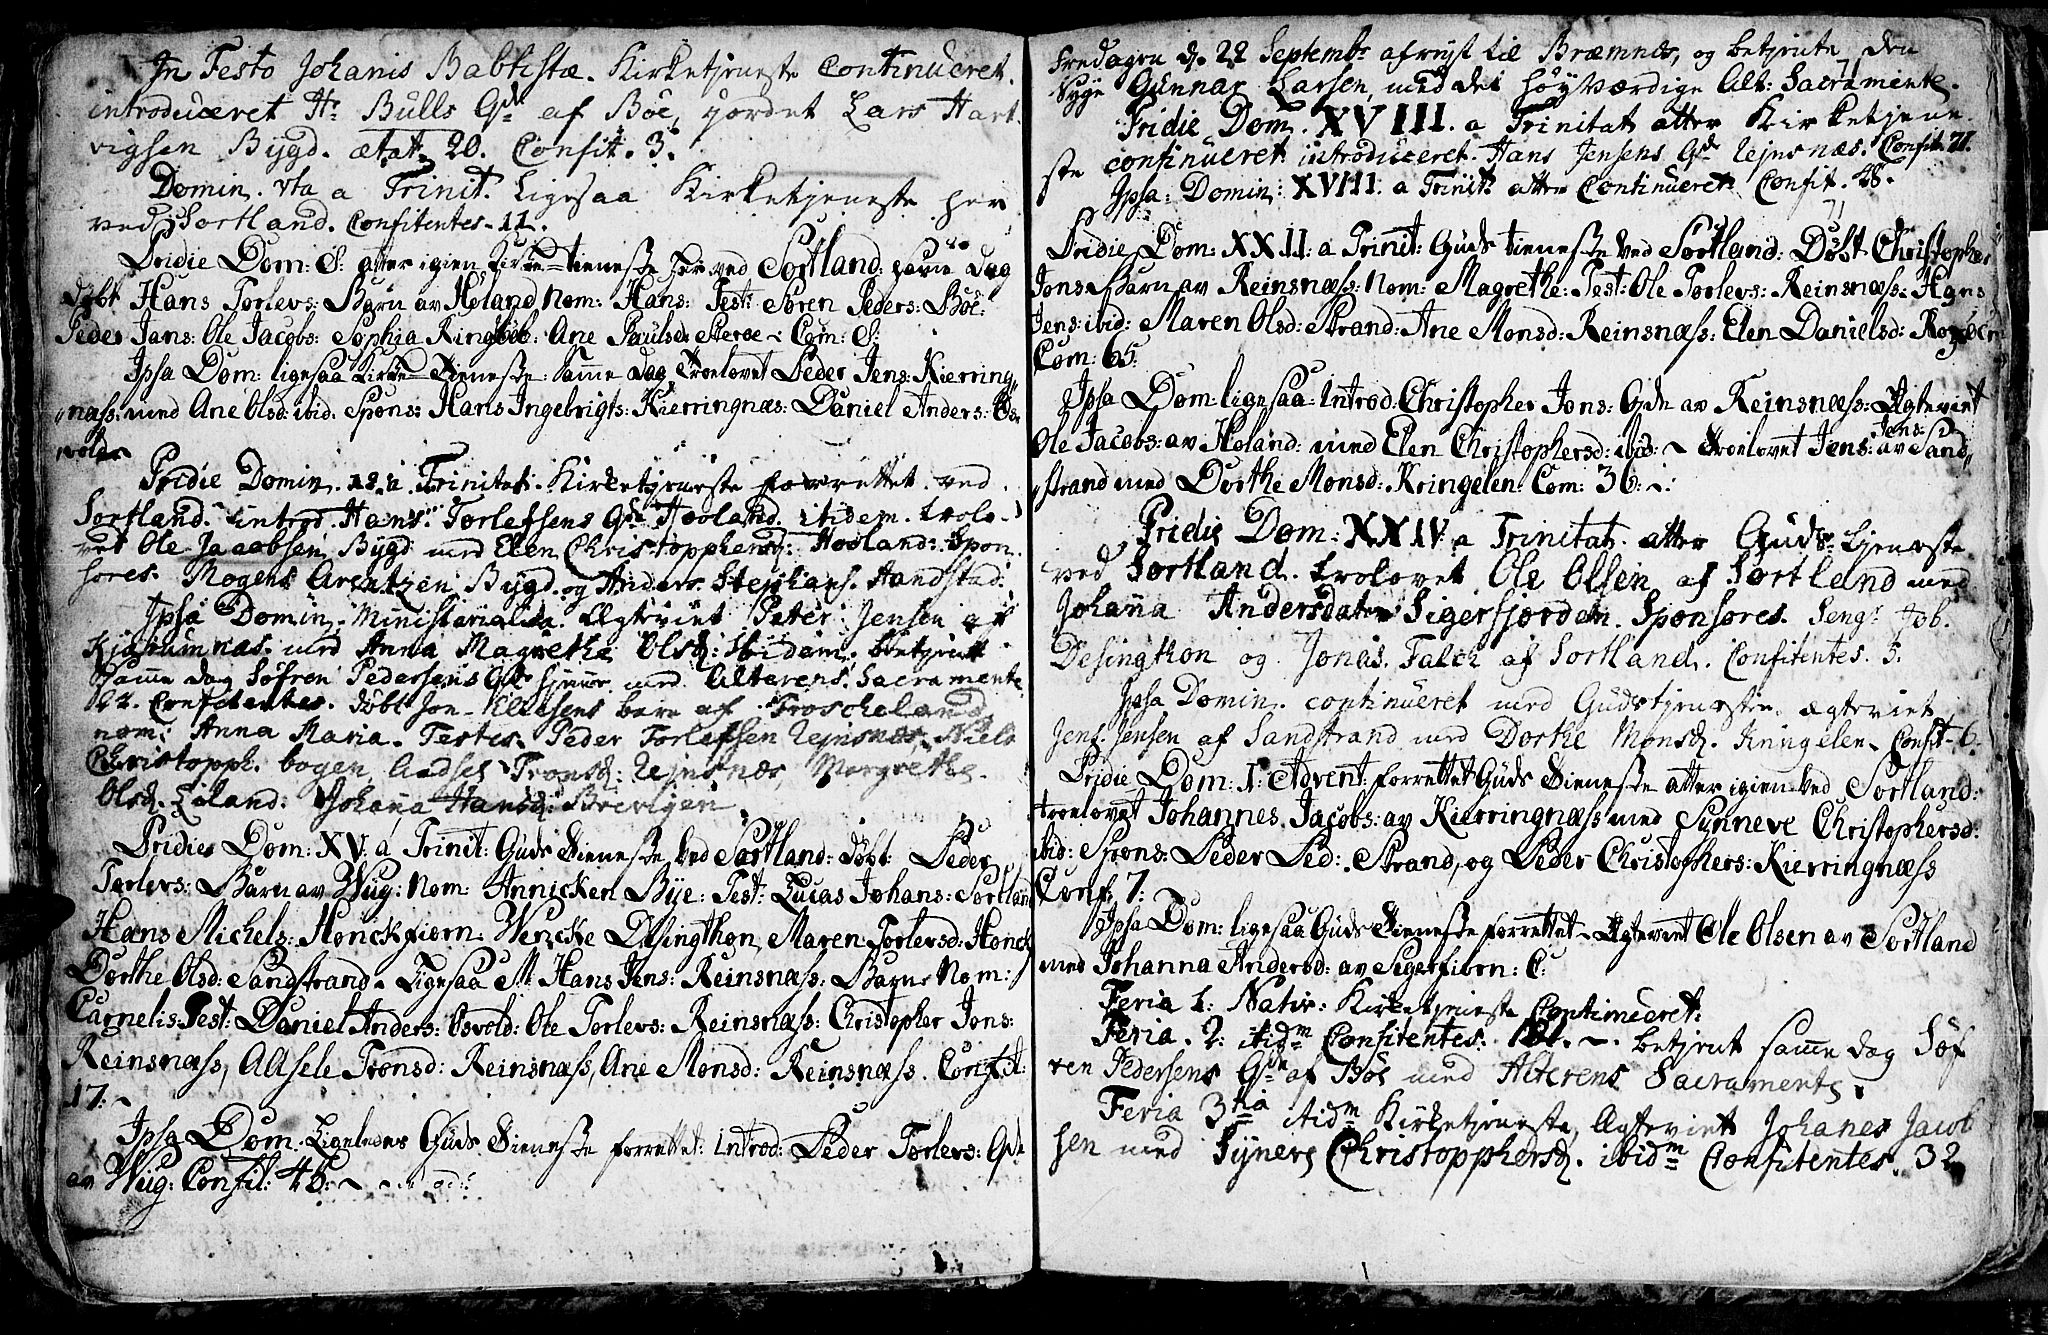 In Festo Johanis Babtistæ. Kirketjeneste Continueret.
introduceret Hr Bulls Qde af Böe, jordet Lars Hart
vigsen Bygd. ætat. 20. Confit. 3.
Domin. Vta a Trinit. Ligesaa Kirketjeneste her
ved Sortland. Confitentes. 11.
Pridie Dom: 8: atter igien Kirke-tieneste her ved Sortland: samme dag
döbt Hans Torlevs: Barn av Holand Nom: Hans: Test: Sören Peders: Böe:
Peder Jans: Ole Jacobs: Sophia Ane Paulsd: Com: 8:
Ipsa Dom: ligesaa Kirke-Tieneste: Samme dag Troelovet Peder Jens: Kierring,,
,,næss: med Ane Olsd: ibid: Spons: Hans Ingebrigts: Kierringnæs: Daniel Anders: Os,,
,,vold
Pridie Domin. 12. a. Trinitat. Kirketjeneste forrettet ved
Sortland. introd. Hans Torlefsens Qde Hooland. itidem. trolo-
vet Ole Jacobsen Bygd med Elen Christopphersd: Hooland: Spon
sores. Mogens Arentzen Bygd. og Anders Stephans. Handstad.
Ipsa Domin. Ministerialia. Ægteviet Peter Jensen af
med Anna Magrethe Olsd: Ibidem. betjent
Samme dag Söfren Pedersens Qde med Alterens Sacramente
22. Confitentes. döbt Jon Ellefsens barn af
nom: Anna Maria. Testes. Peder Torlefsen Rejnsnæs, Niels
Christopph. bogen, Aadsel Tronsd: Rejnsnæs, Margrethe
Olsd. Liland: Johana Hansd:
Pridie Dom: XV. a Trinit: Guds Tieneste ved Sortland: döbt Peder
Torlevs: Barn av Wiig: Nom: Annicken Bye: Test: Lucas Johans: Sortland
Hans Michels: Honckfiorn: Wencke Desingthon, Maren Torlevsd: Honck
Dorthe Olsd: Sandstrand. Ligesaa Hans Jens: Reinsnæss: Barn Nom:
Cornelis: Test: Daniel Anders: Osvold: Ole Torlevs: Reinsnæss: Christopher Jons:
Reinsnæss, AAsele Tronsd: Reinsnæss, Ane Monsd: Reinsnæss. Confit:
17:
Ipsa Dom. Ligeledes Guds Tieneste forrettet: introd: Peder Torlevs: Qde
av Wiig: Confit: 48:
Fredagen d. 22 Septembr afreyst til Bræmnes, og betjente den
Syge Gunnar Larsen, med det höyværdige Alt: Sacramente.
Pridie Dom. XVIII. a Trinitat. atter Kirketjene
ste continueret. introduceret. Hans Jensens Qde Rejnsnæs. Confit. 71.
Ipsa: Domin: XVIII. a Trinit: atter Continueret Confit. 48.
Pridie Dom: XXII: a Trinit: Guds tieneste ved Sortland: Döbt Christopher
Jons: Barn av Reinsnæss: Nom: Magrethe: Test: Ole Torlevs: Reinsnæss: Hans
Jens: ibid: Maren Olsd: Strand: Ane Monsd: Reinsnæss: Elen Danielsd:
Com: 65.
Ipsa Dom: ligesaa: Introd: Christopher Jons: Qde av Reinsnæss: Ægteviet
Ole Jacobs: av Holand: med Elen Christophersd: ibid: Troelovet Jens Jens: av Sand,,
,,strand med Dorthe Monsd: Kringelen: Com: 36:
Pridie Dom: XXIV a Trinitat. atter Guds-tjeneste
ved Sortland. trolovet Ole Olsen af Sortland med
Johana Andersdater Sigerfjorden. Sponsores. Sengr Job.
Desingthon og Jonas Falch af Sortland. Confitentes. 5.
Ipsa Domin. continueret med Gudstjeneste. ægteviet
Jens Jensen af Sandstrand med Dorthe Monsd. Kringelen. Confit. 6.
Pridie Dom: 1. Advent: forrettet Guds Tieneste atter igien ved Sortland:
troelovet Johannes Jacobs: av Kierringnæss med Synneve Christophersd:
ibid: Spons: Peder Ped: Strand, og Peder Christophers: Kierringnæss
Conf: 7:
Ipsa Dom: ligesaa Guds Tieneste forrettet. Ægteviet Ole Olsen av Sortland
med Johanna Andersd: av Sigerfiorn: C:
Feria 1: Nativ: Kirketjeneste Continueret:
Feria. 2: itidm Confitentes. betjent samme dag Söf
ren Pedersens Qde af Böe med Alterens Sacramente.
Feria 3tia itidm Kirketjeneste, Ægteviet Johanes Jacob
sen med Synneve Christopphersd. ibidm Confitentes. 32